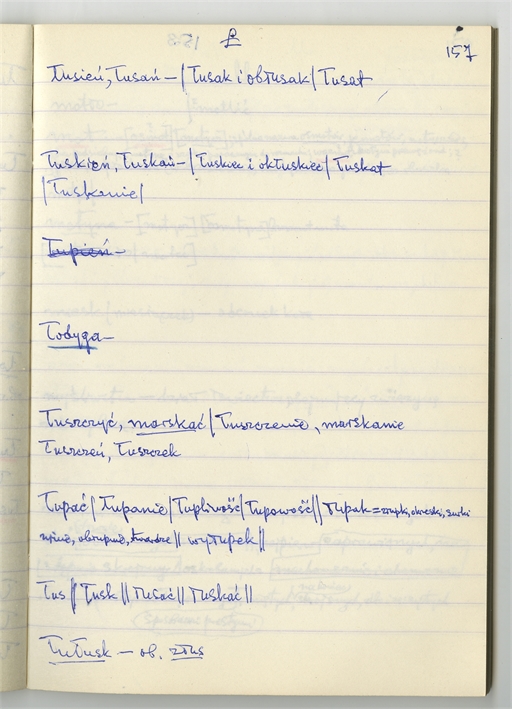 Ł
157
Łusień, Łusań – | Łusak i obłusak | Łusat
Łuskień, Łuskań – | Łuskiec i okłuskiec | Łuskat
| Łuskanie |
Łupień –
Łodyga –
Łuszczyć, marskać | Łuszczenie, marskanie
Łuszczeń, Łuszczek
Łupać | Łupanie | Łupliwość | Łupowość || Łupak = słupki, okreski,
|| wyłupek ||
Łus || Łusk || Łusać || Łuskać ||
Łułusk – ob. złus